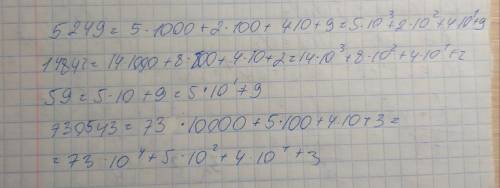 5249 = 5·1000+2·100+ 4·10+9=5·10³+2·10²+4·10¹+9
14842=14·1000+8·100+4·10+2=14·10³+8·10²+4·10¹+2
59=5·10+9=5·10¹+9
730543=73·10000+5·100+4·10+3=
=73·10⁴+5·10²+4·10¹+3